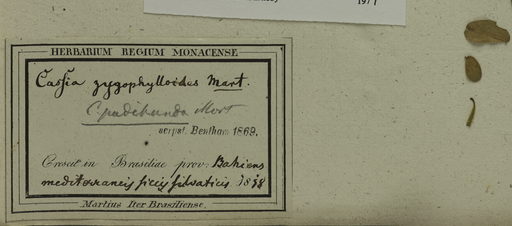 1971
HERBARIUM REGIUM MONACENSE
Cassia zygophylloides Mart.
C. pudibunda Mart
scrpst. Bentham 1869.
Crescit in Brasiliae prov: Bahiens
mediterraneis siccis silvaticis 1818
Martius Iter Brasiliense.